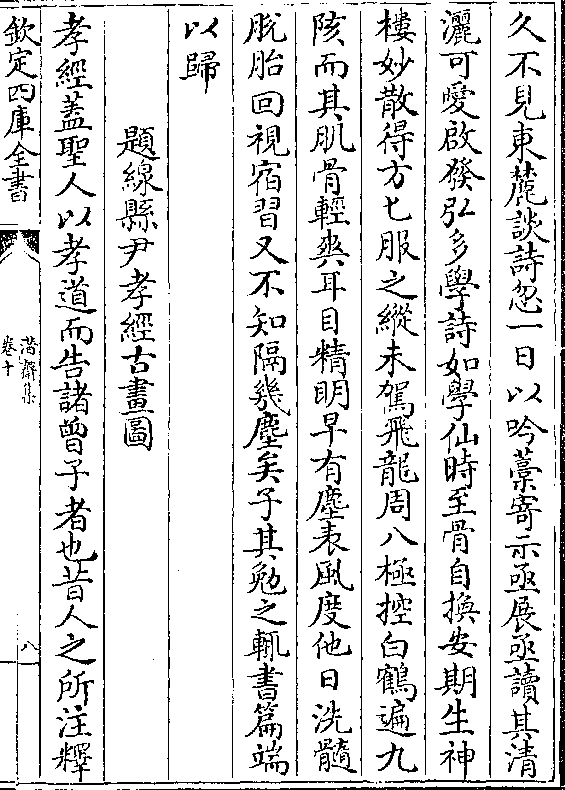 久不見東麓談詩忽一日以吟藁寄示亟展亟讀其清
灑可愛啟發弘多學詩如學仙時至骨自換安期生神
樓妙散得方七服之縱未駕飛龍周八極控白鶴遍九
陔而其肌骨輕爽耳目精明早有塵表風度他日洗髓
脫胎回視宿習又不知隔幾塵矣子其勉之輒書篇端
以歸
題線縣尹孝經古畫圖
孝經蓋聖人以孝道而告諸曾子者也昔人之所注釋
欽定四庫全書
潛齋集
卷十
八